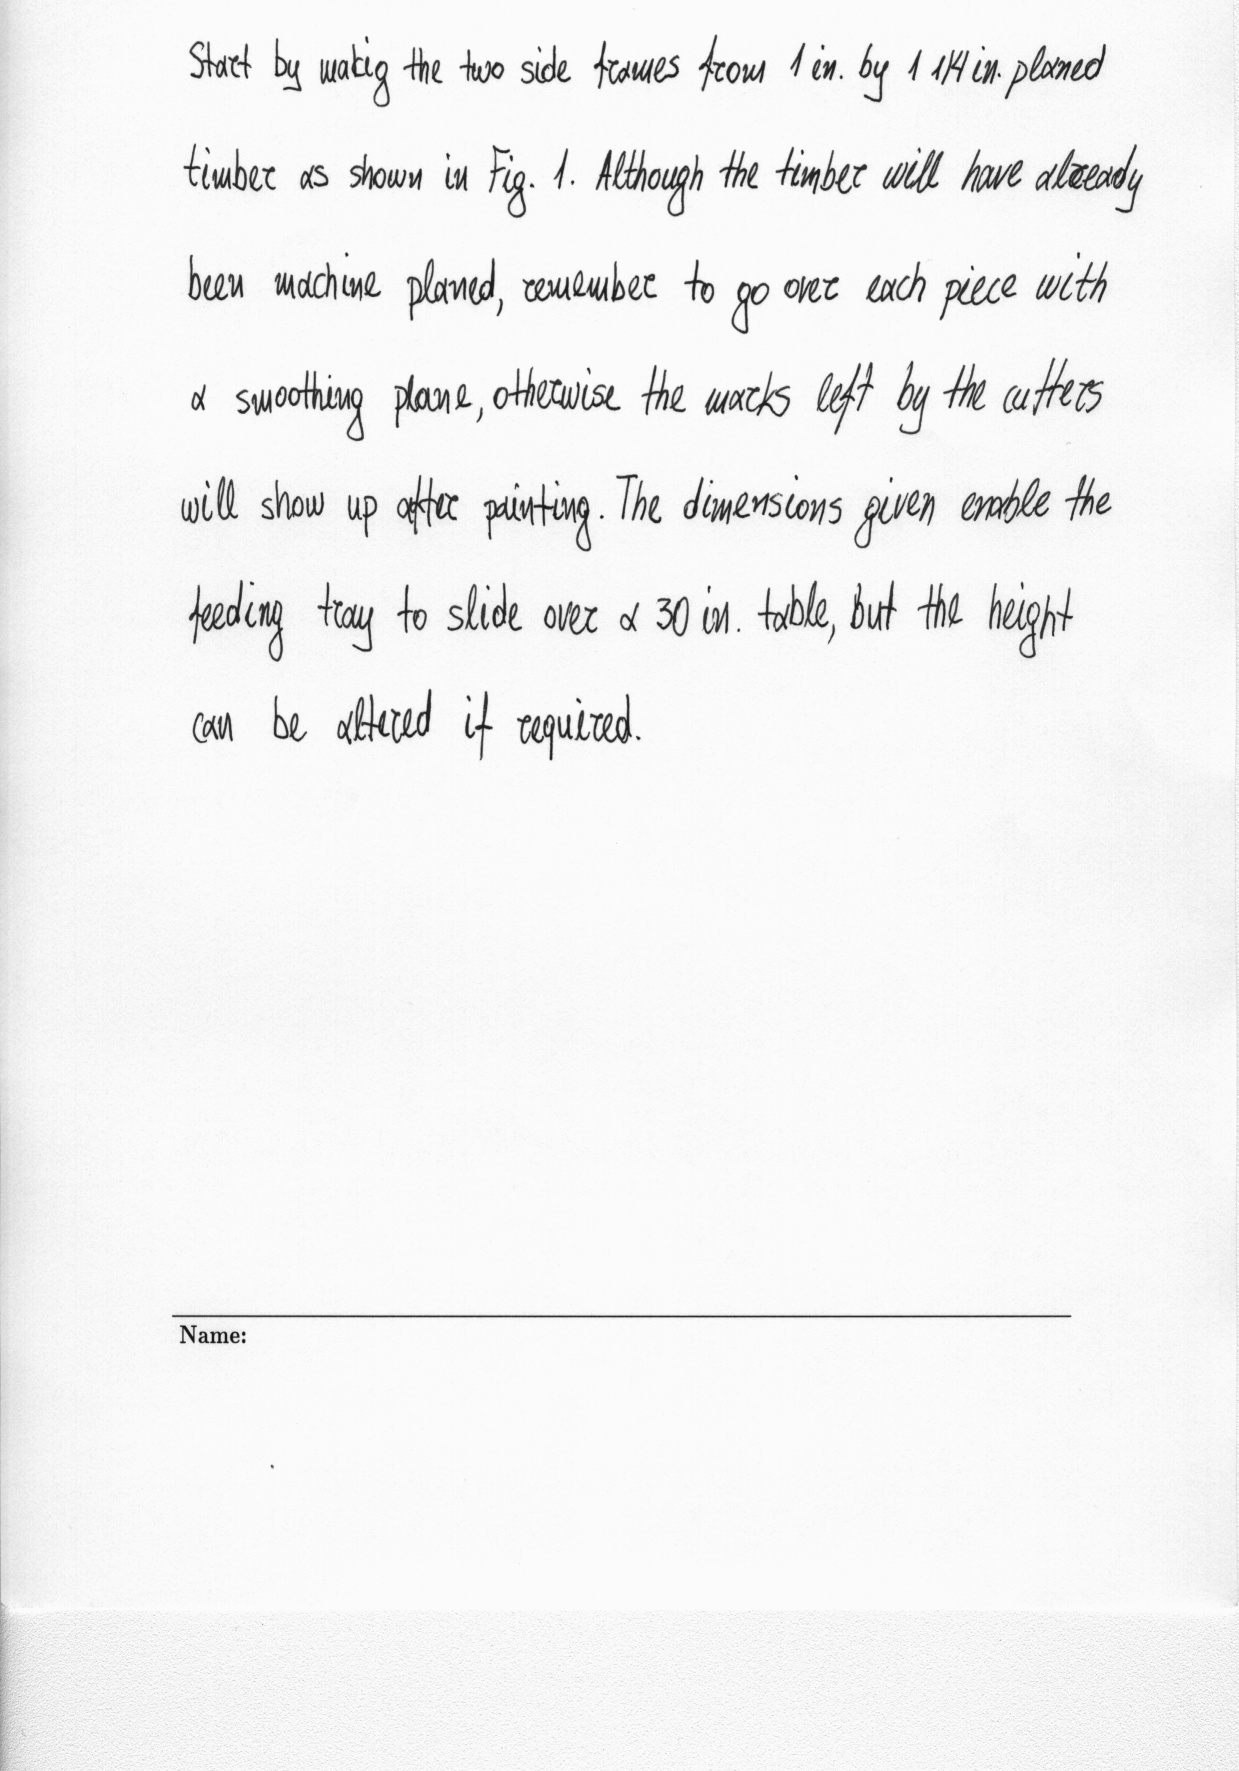 Start by makig the two side frames from 1 in. by 1 1/4 in. planed
timber as shown in Fig. 1. Although the timber will have already
been machine planed, remember to go over each piece with
a smoothing plane, otherwise the marks left by the cutters
will show up after painting. The dimensions given enable the
feeding tray to slide over a 30 in. table, but the height
can be altered if required.
Name: